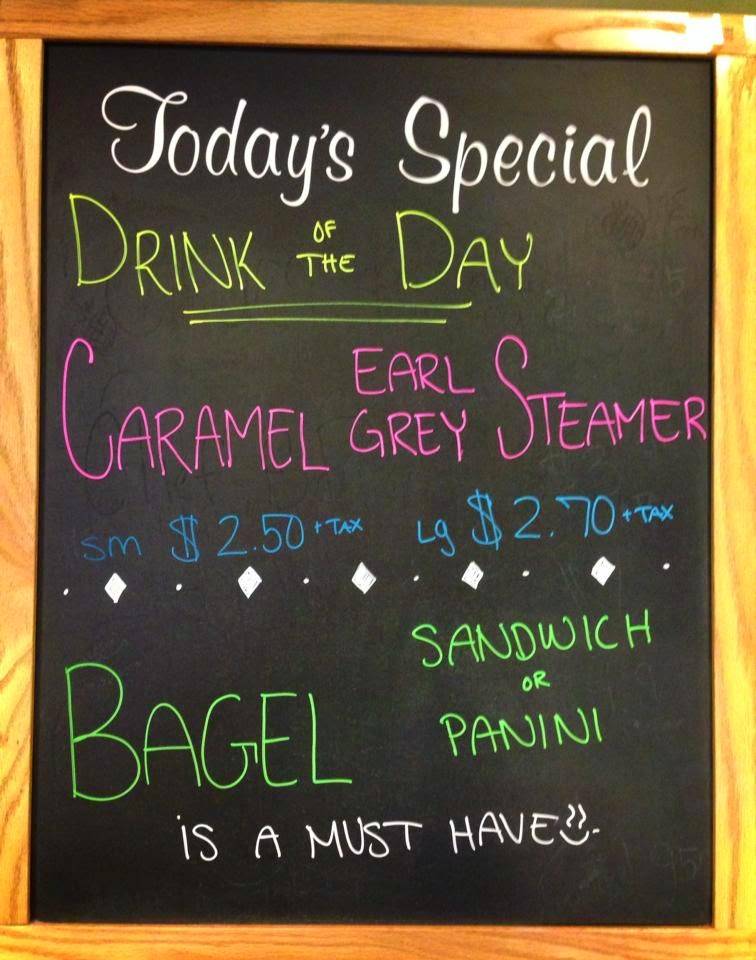 Today's Special
DRINK OF THE DAY
CARAMEL EARL GREY STEAMER
sm $2.50 + TAX Lg $2.70 + TAX
BAGEL SANDWICH OR PANINI
iS A MUST HAVE